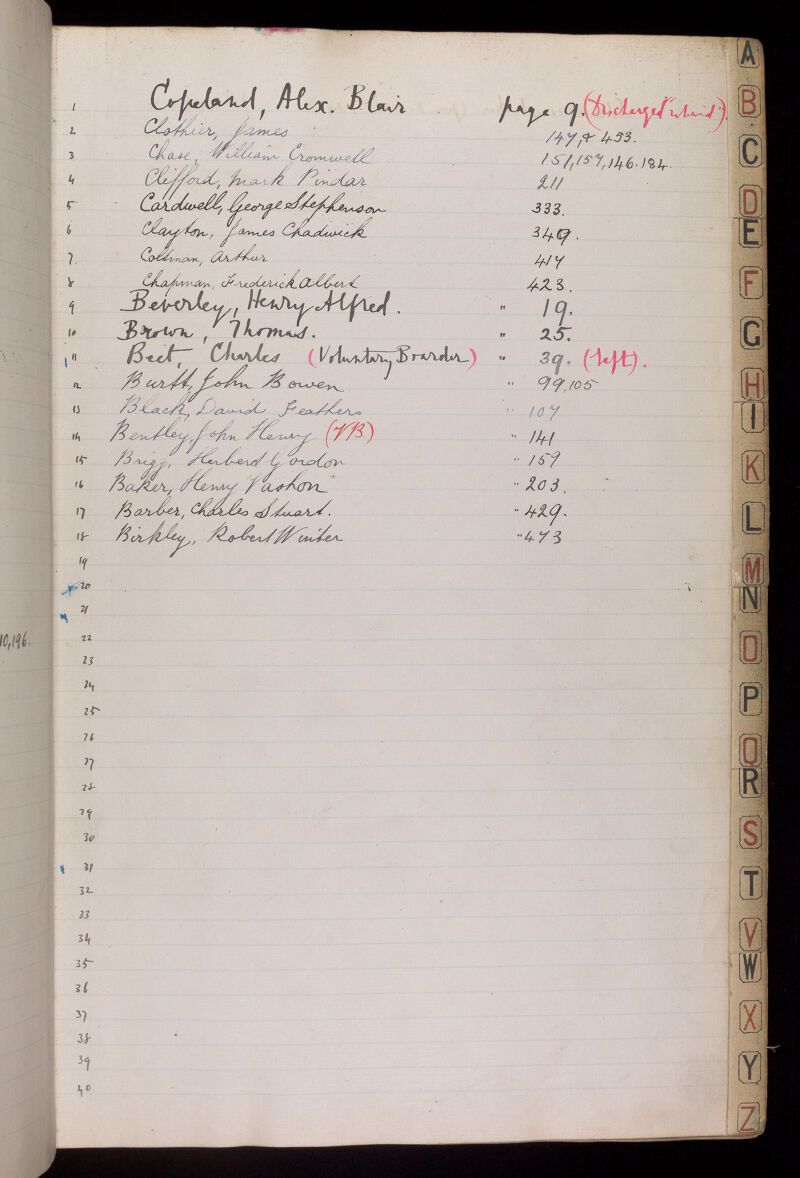 1 Copeland, Alex. Blair page 9. (Discharged "relieved").
2 Clothier, James 147, & 453.
3 Chase, William Cromwell 151, 157, 146. 184.
4 Clifford, Mark Pindar 211
5 Cardwell, George Stephenson 333.
6 Clayton, James Chadwick 349.
7. Coltman, Arthur 417
8 Chapman, Frederick Albert 423.
9 Beverley, Henry Alfred. " 19.
10 Brown, Thomas. " 25.
11 Beet, Charles (Voluntary Boarder) " 39. (left).
12 Burtt, John Bowen " 99, 105
13 Black, David Feathers " 107
14 Bentley, John Henry (V.B.) " 141
15 Brigg, Herbert Gordon " 159
16 Baker, Henry Vashon " 203.
17 Barber, Charles Stuart. " 429.
18 Birkley, Robert Winter " 473
19
20
21
10, 196.
22
23
24
25
26
27
28
29
30
31
32
33
34
35
36
37
38
39
40
A
B
C
D
E
F
G
H
I
K
L
M
N
O
P
Q
R
S
T
V
W
X
Y
Z